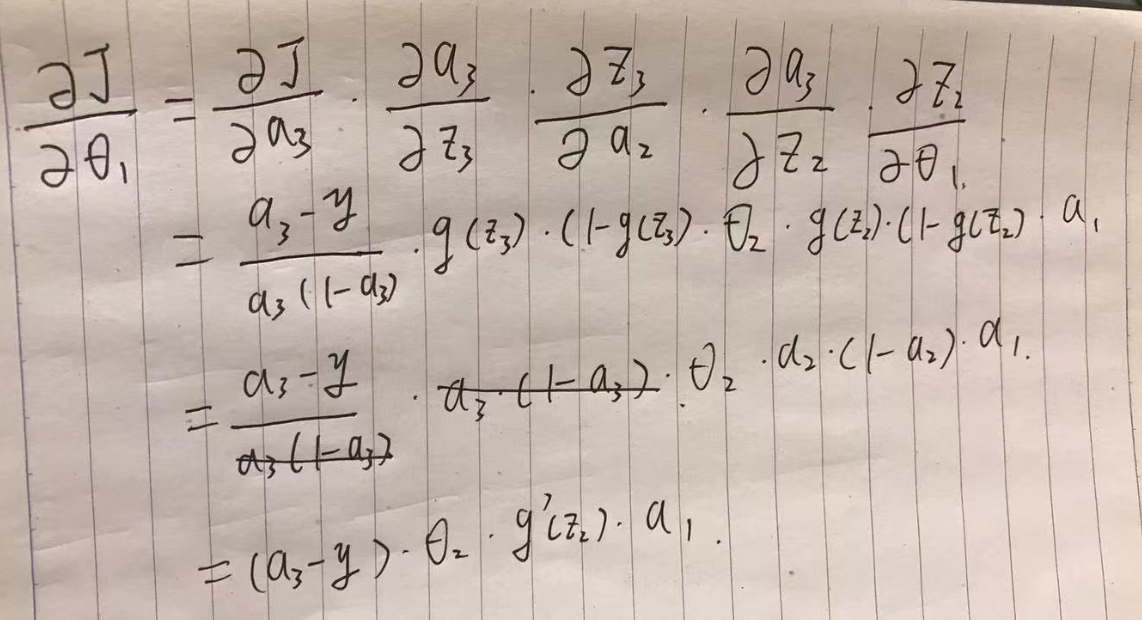 ∂J/∂θ₁ = ∂J/∂a₃ · ∂a₃/∂z₃ · ∂z₃/∂a₂ · ∂a₃/∂z₂ · ∂z₂/∂θ₁.
= (a₃-y)/(a₃(1-a₃)) · g(z₃) · (1-g(z₃) · θ₂ · g(z₂)·(1-g(z₂) · a₁
= (a₃-y)/(a₃(1-a₃)) · a₃·(1-a₃) · θ₂ · a₂·(1-a₂)·a₁.
= (a₃-y) · θ₂ · g'(z₂) · a₁.